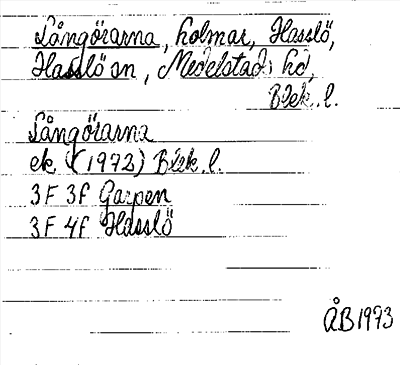 Långörarna, holmar, Hasslö,
Hasslö sn, Medelstads hd,
Blek. l.
Långörarna
ek. (1973) Blek. l.
3F 3f Garpen
3F 4f Hasslö
ÅB 1973